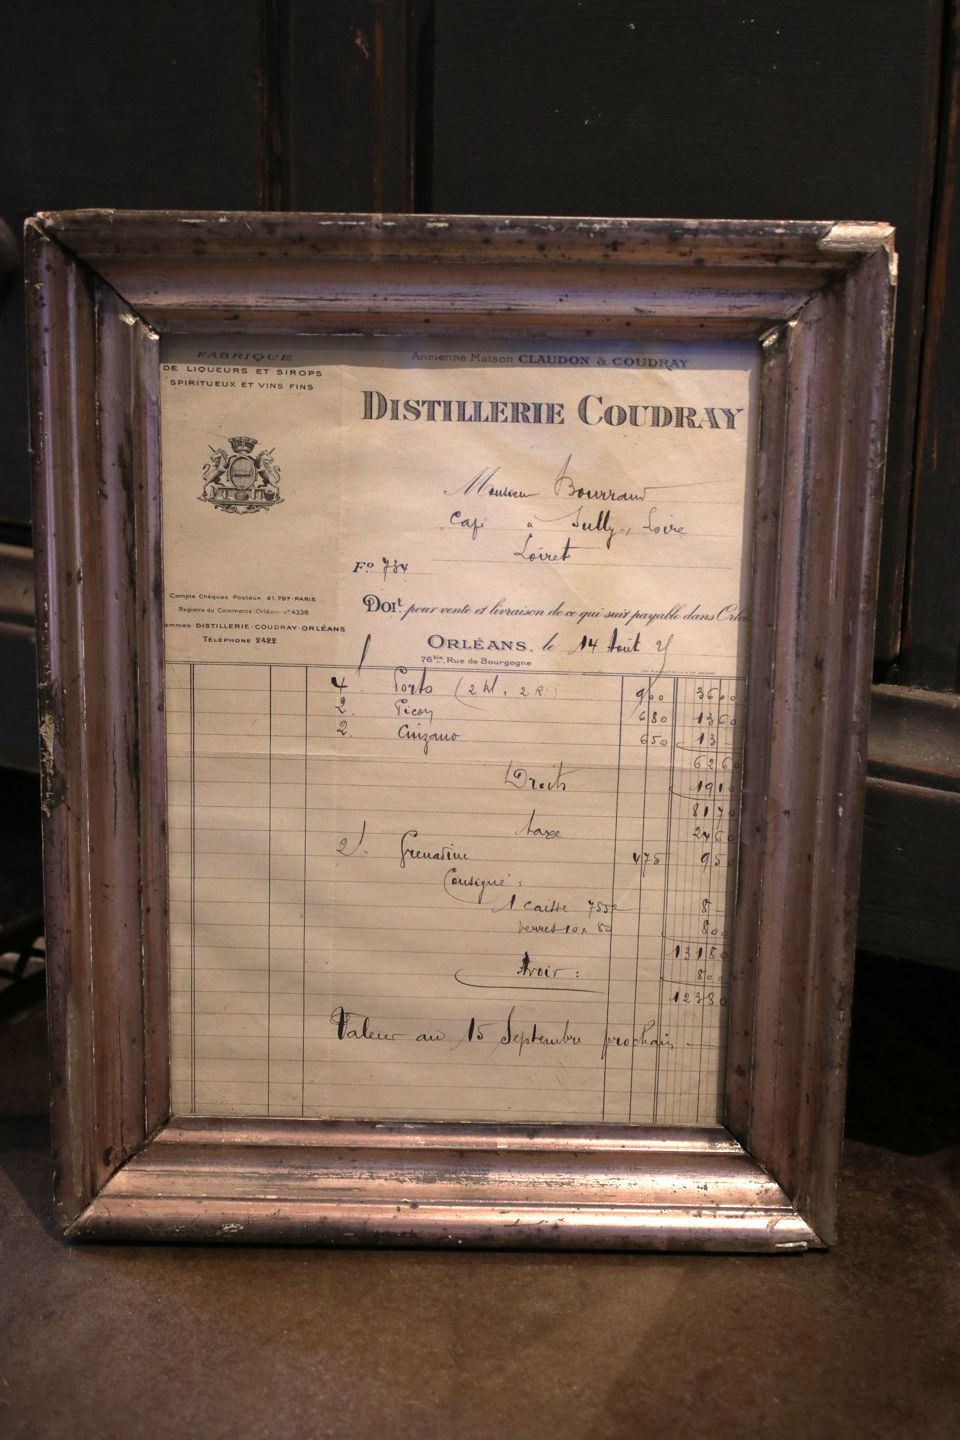 FABRIQUE
DE LIQUEURS ET SIROPS
SPIRITUEUX ET VINS FINS
Ancienne Maison CLAUDON & COUDRAY
DISTILLERIE COUDRAY
Monsieur Bourraud
Café à Sully s/ Loire
Loiret
Fº 734
Compte Chèques Postaux 21.797-PARIS
Registre du Commerce-Orléans-nº4336
DISTILLERIE-COUDRAY-ORLÉANS
TÉLÉPHONE 2422
DOIT. pour vente et livraison de ce qui suit payable dans
ORLÉANS, le 14 Août
76bis, Rue de Bourgogne
4 Porto (2 2 R) 900 3600
2 Picon 680 1360
2 Cinzano 650 13
6260
Droits 191
817
taxe 246
2 Grenadine 475 950
Consigné:
1 caisse 8
verres 10 x 80 800
13180
Avoir: 800
12380
Valeur au 15 Septembre prochain